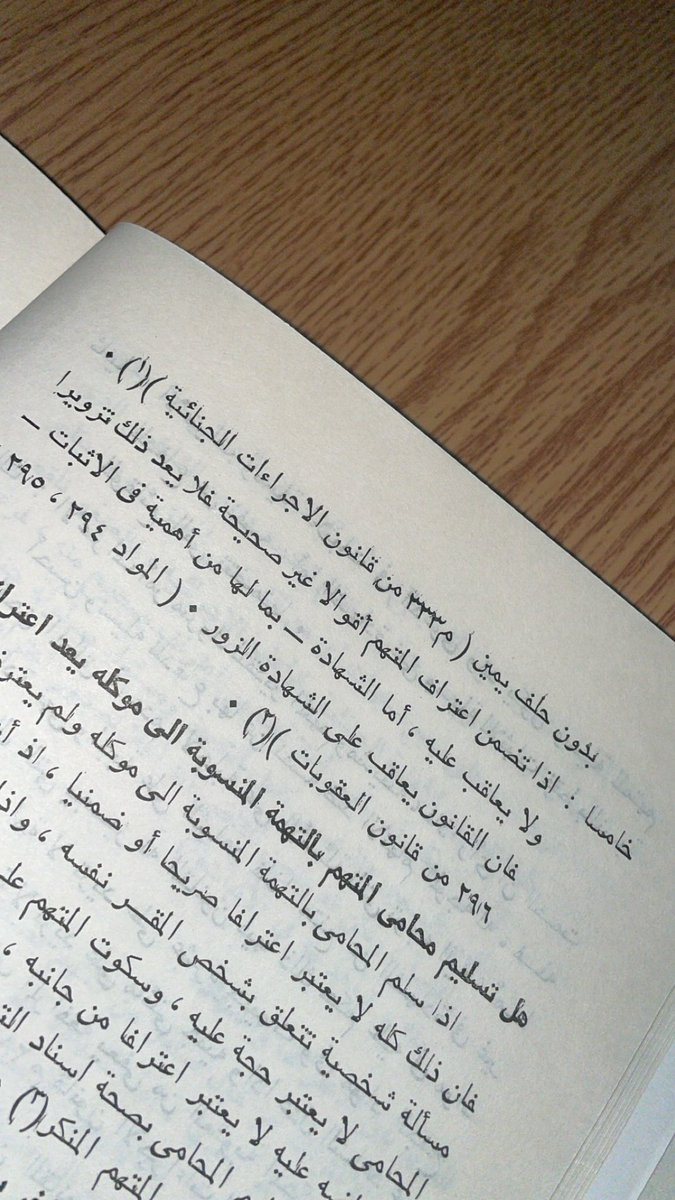 بدون حلف يمين ( م ٣٣٣ من قانون الاجراءات الجنائية )(١) .
خامسا : اذا تضمن اعتراف المتهم أقوالا غير صحيحة فلا يعد ذلك تزويرا
ولا يعاقب عليه ، أما الشهادة – بما لها من أهمية فى الاثبات –
فان القانون يعاقب على الشهادة الزور . ( المواد ٢٩٤ ، ٢٩٥ ،
٢٩٦ من قانون العقوبات )(٢) .
هل تسليم محامى المتهم بالتهمة المنسوبة الى موكله يعد
اذا سلم المحامى بالتهمة المنسوبة الى موكله ولم
فان ذلك كله لا يعتبر اعترافا صريحا أو ضمنيا ، اذ
مسألة شخصية تتعلق بشخص المقر نفسه ،
المحامى لا يعتبر حجة عليه ، وسكوت المتهم
عليه لا يعتبر اعترافا من جانبه ،
المحامى بصحة اسناد
المتهم المنكر(٣)